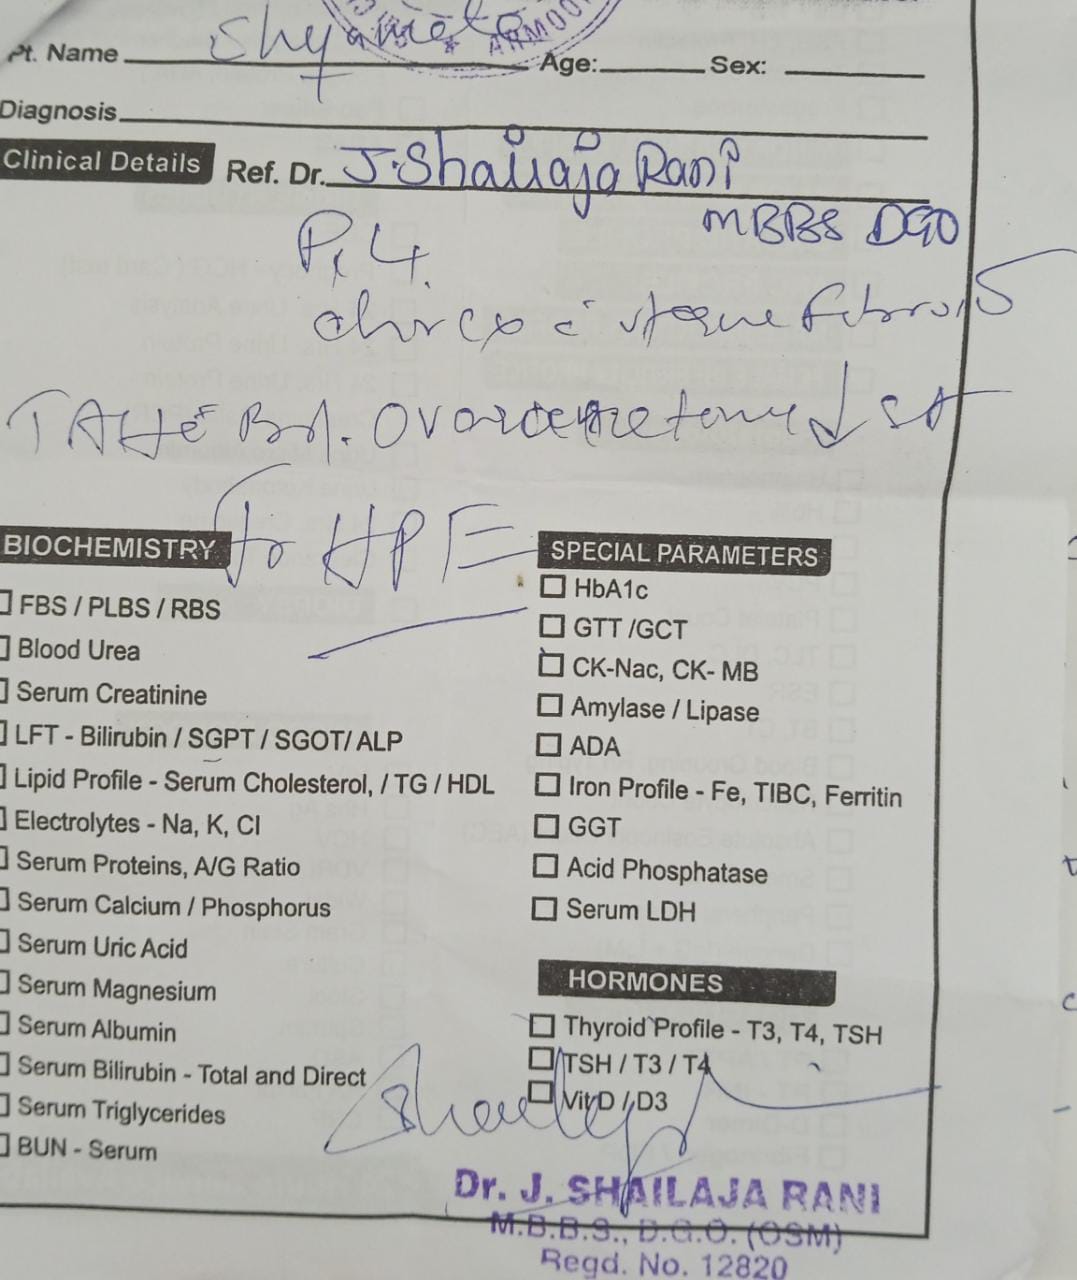 ARMOOR
Pt. Name Shymala Age: Sex:
Diagnosis
Clinical Details Ref. Dr. J. Shailaja Rani
MBBS DGO
fibroid
TAH Bil.
For HPE
BIOCHEMISTRY
FBS / PLBS / RBS
Blood Urea
Serum Creatinine
LFT - Bilirubin / SGPT / SGOT/ ALP
Lipid Profile - Serum Cholesterol, / TG / HDL
Electrolytes - Na, K, Cl
Serum Proteins, A/G Ratio
Serum Calcium / Phosphorus
Serum Uric Acid
Serum Magnesium
Serum Albumin
Serum Bilirubin - Total and Direct
Serum Triglycerides
BUN - Serum
SPECIAL PARAMETERS
HbA1c
GTT /GCT
CK-Nac, CK- MB
Amylase / Lipase
ADA
Iron Profile - Fe, TIBC, Ferritin
GGT
Acid Phosphatase
Serum LDH
HORMONES
Thyroid Profile - T3, T4, TSH
TSH / T3 / T4
Vit D / D3
Dr. J. SHAILAJA RANI
M.B.B.S., D.G.O. (OSM)
Regd. No. 12820